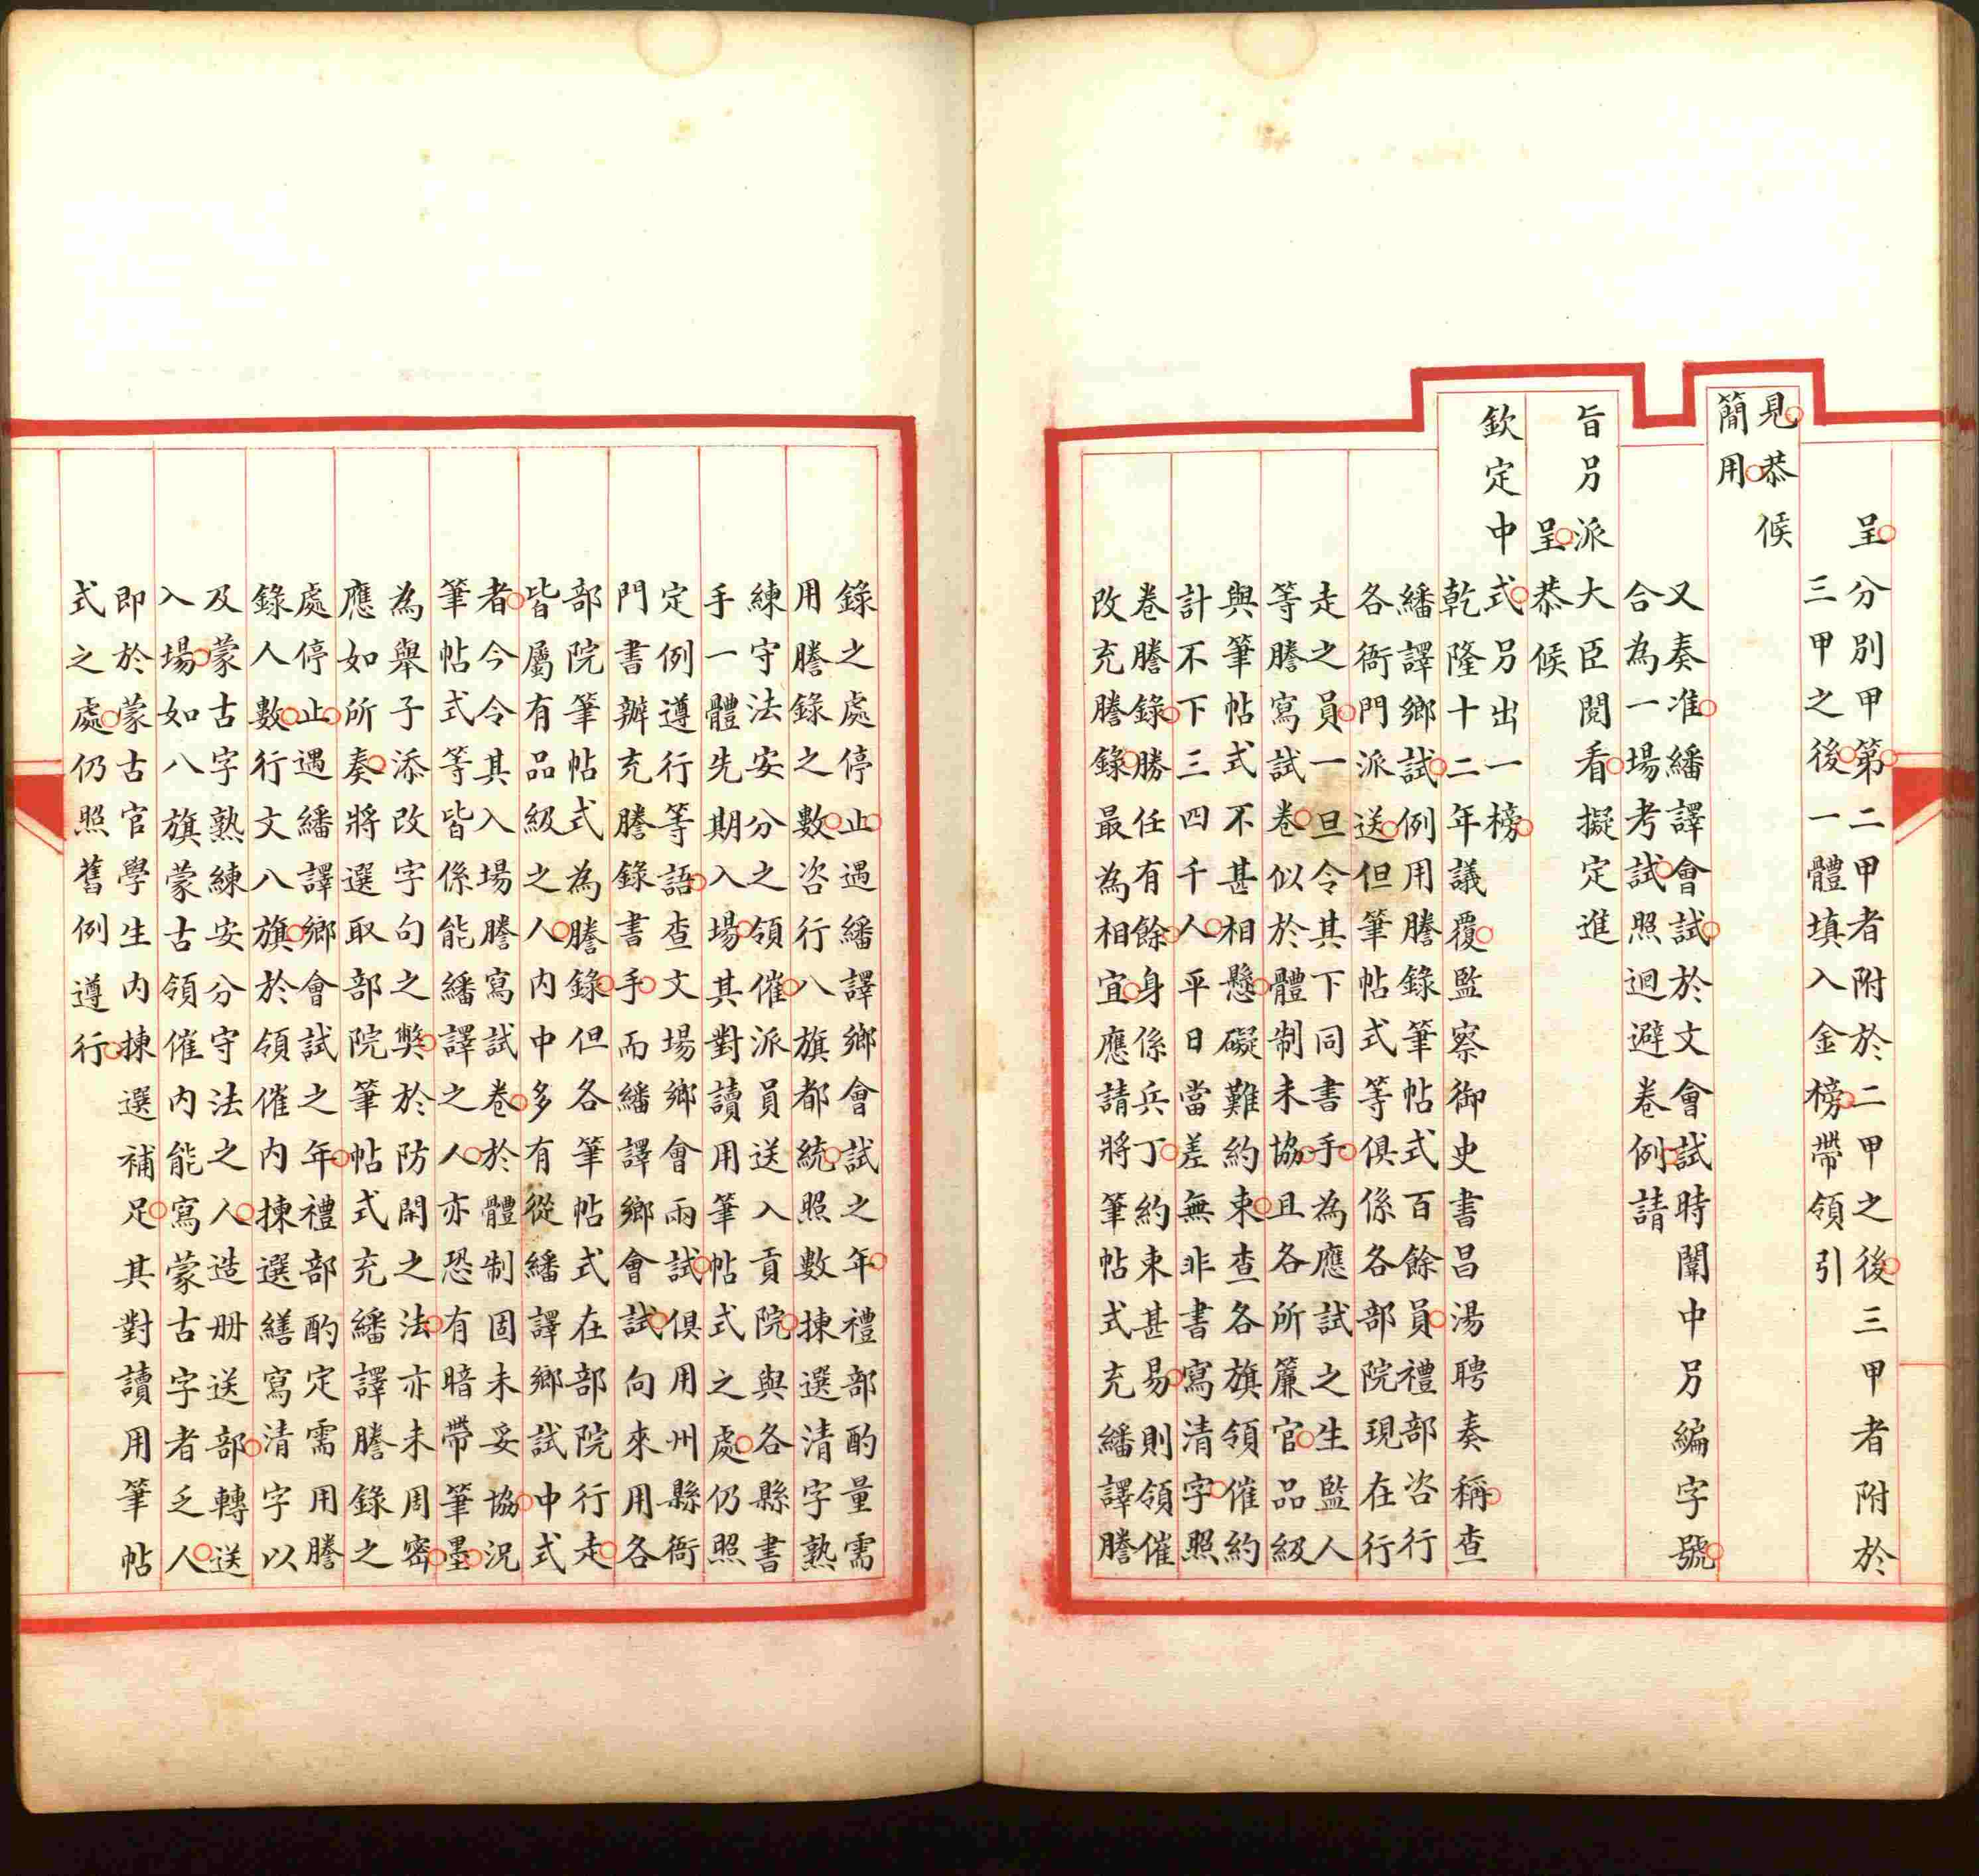 呈分別甲第二甲者附於二甲之後三甲者附於
三甲之後一體填入金榜帶領引
見恭候
簡用
又奏准繙譯會試於文會試時闈中另編字號
合為一場考試照迴避卷例請
旨另派大臣閱看擬定進
呈恭候
欽定中式另出一榜
乾隆十二年議覆監察御史書昌湯聘奏稱查
繙譯鄉試例用謄錄筆帖式百餘員禮部咨行
各衙門派送但筆帖式等俱係各部院現在行
走之員一旦令其下同書手為應試之生監人
等謄寫試卷似於體制未協且各所簾官品級
與筆帖式不甚相懸礙難約束查各旗領催約
計不下三四千人平日當差無非書寫清字照
卷謄錄勝任有餘身係兵丁約束甚易則領催
改充謄錄最為相宜應請將筆帖式充繙譯謄
錄之處停止遇繙譯鄉會試之年禮部酌量需
用謄錄之數咨行八旗都統照數揀選清字熟
練守法安分之領催派員送入貢院與各縣書
手一體先期入場其對讀用筆帖式之處仍照
定例遵行等語查文場鄉會兩試俱用州縣衙
門書辦充謄錄書手而繙譯鄉會試向來用各
部院筆帖式為謄錄但各筆帖式在部院行走
皆屬有品級之人內中多有從繙譯鄉試中式
者今令其入場謄寫試卷於體制固未妥協況
筆帖式等皆係能繙譯之人亦恐有暗帶筆墨
為舉子添改字句之獘於防閑之法亦未周密
應如所奏將選取部院筆帖式充繙譯謄錄之
處停止遇繙譯鄉會試之年禮部酌定需用謄
錄人數行文八旗於領催內揀選繕寫清字以
及蒙古字熟練安分守法之人造冊送部轉送
入場如八旗蒙古領催內能寫蒙古字者乏人
即於蒙古官學生內揀選補足其對讀用筆帖
式之處仍照舊例遵行